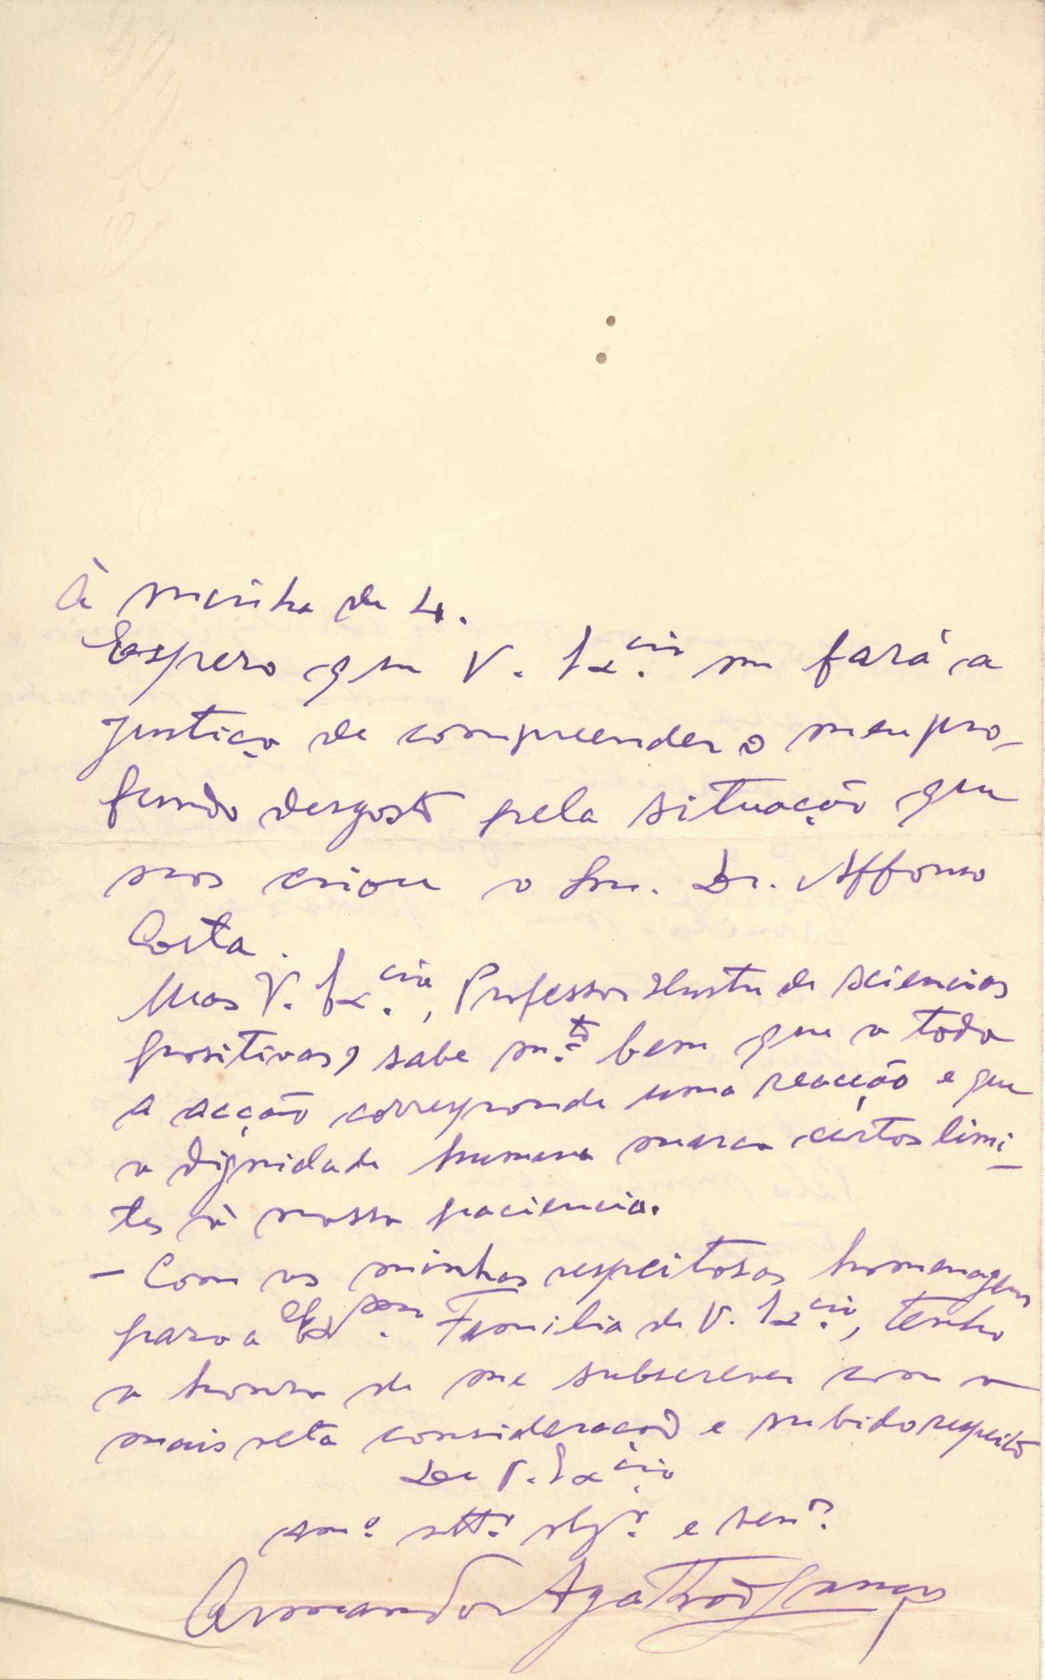 À minha de 4.
Espero que V. Ex.cia me fará a
justiça de compreender o meu pro-
fundo desgosto pela situação que
nos criou o Snr. Dr. Affonso
Costa.
Mas V. Ex.cia, Professor illustre de sciencias
positivas, sabe m.to bem que a toda
a acção corresponde uma reacção e que
a dignidade humana marca certos limi-
tes à nossa paciencia.
- Com as minhas respeitosas homenagens
para a Ex.ma Familia de V. Ex.cia, tenho
a honra de me subscrever com a
mais recta consideração e subido respeito
De V. Ex.cia
am.o att.o obg.o e
Armando Agatão